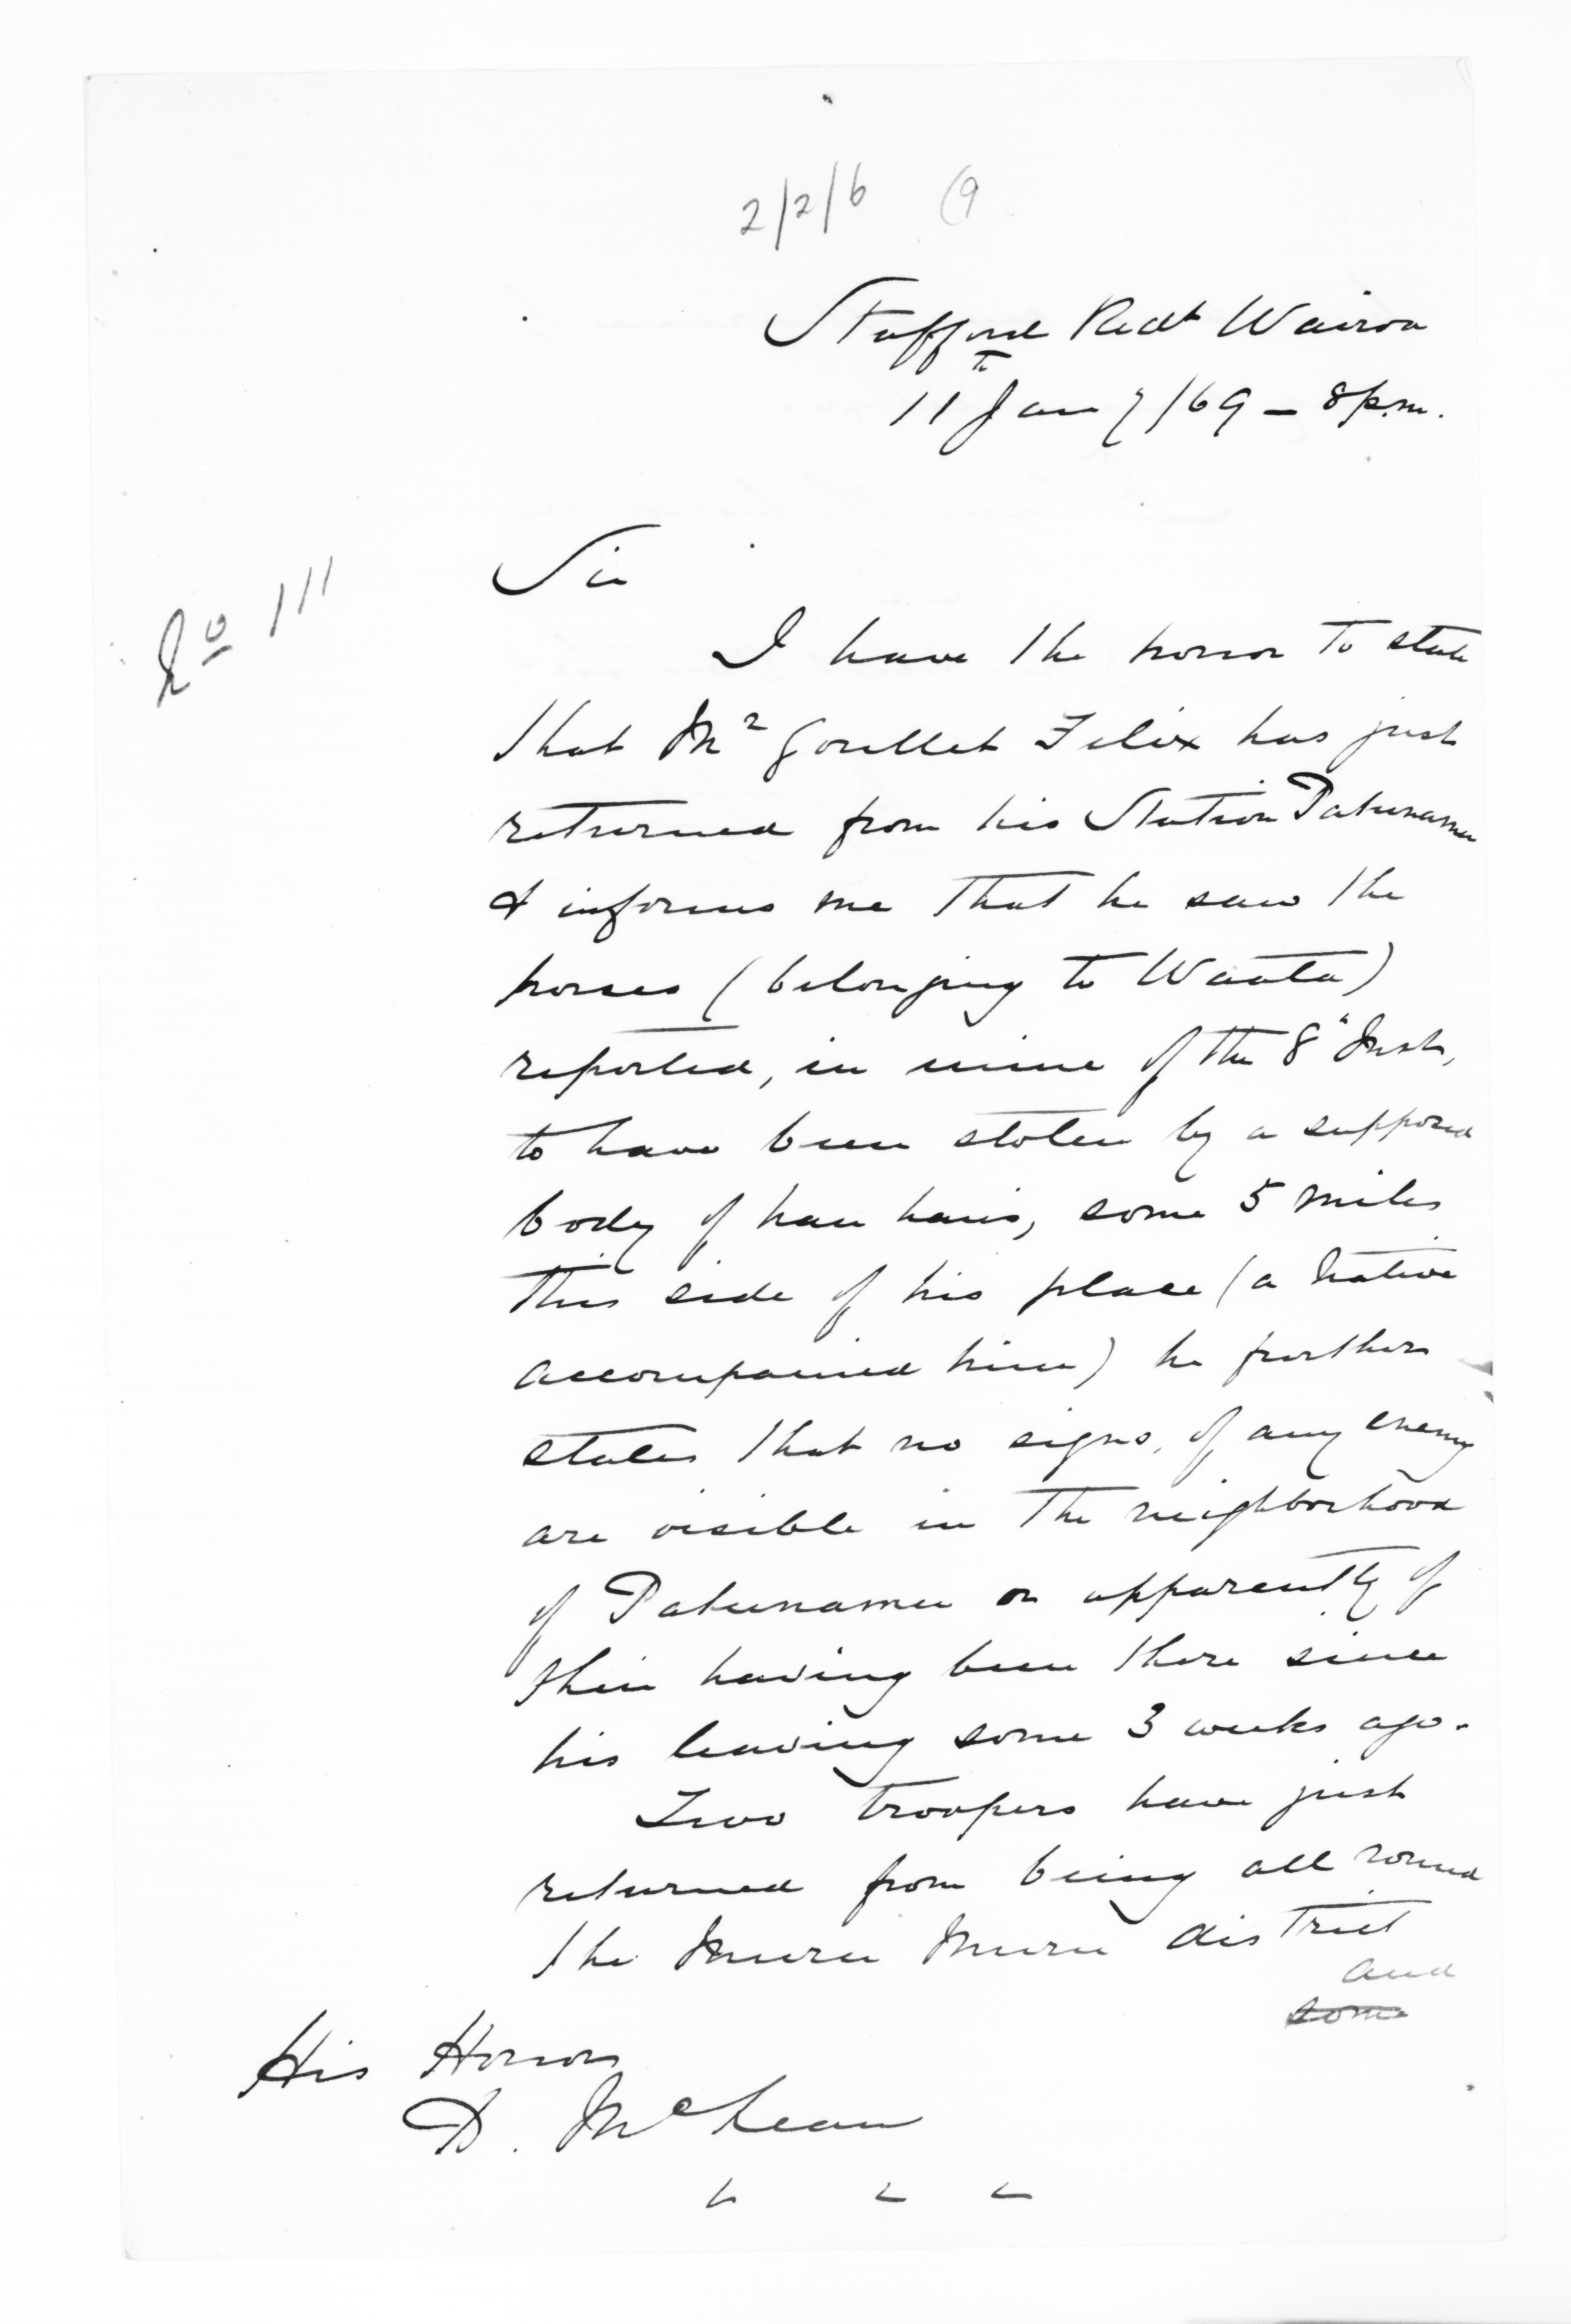 2/2/6 (9
Stafford Redt Wairoa
11th Jany/69 – 8 p.m.
No 111
Sir
I have the honor to state
that Mr Goullet Felix has just
returned from his Station Patunamu
& informs me that he saw the
horses (belonging to Waata)
reported, in mine of the 8" Inst,
to have been stolen by a supposed
body of hau haus, some 5 miles
this side of his place (a Native
accompanied him) he further
states that no signs, of any enemy
are visible in the neighborhood
of Patunamu or apparently of
their having been there since
his leaving some 3 weeks ago.
Two troopers have just
returned from being all round
the Muru Muru district
and
some
His Honor
D. McLean